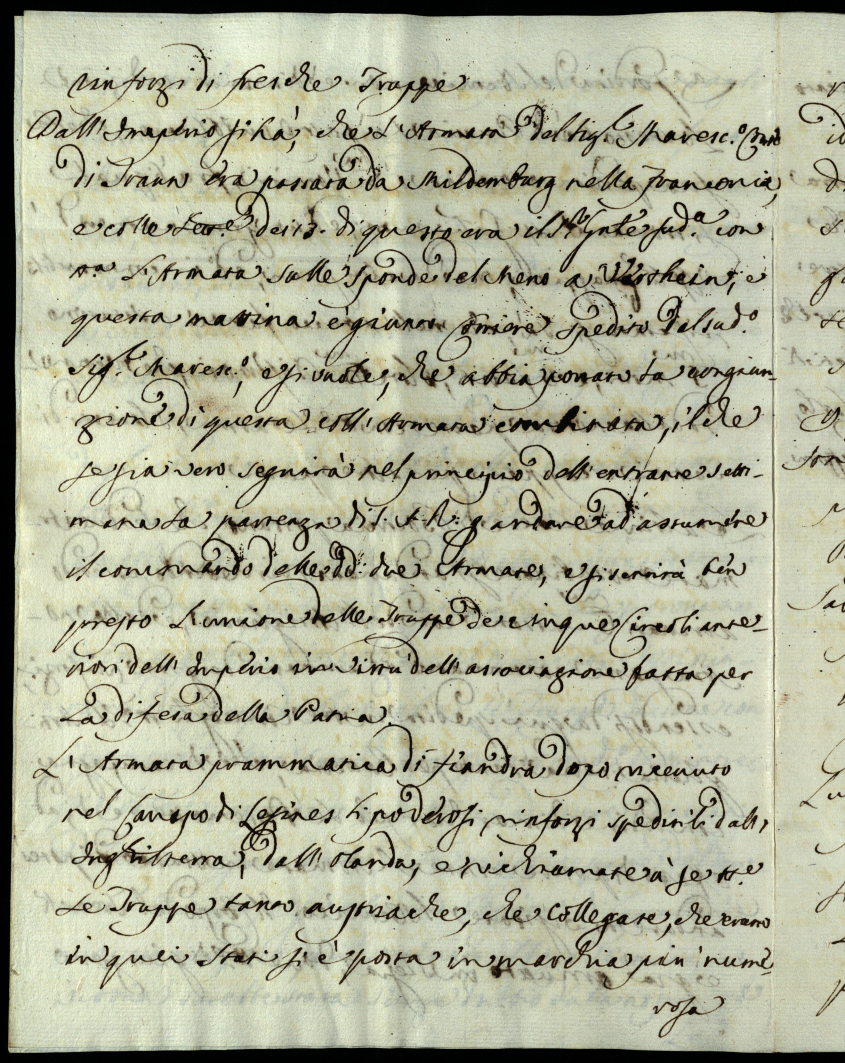 rinforzi di fresche Truppe
Dall'Imperio si hà, che L'Armata del Sig.r Maresc.o Conte
di Traun era passata da Mildemburg nella Franconia,
e colle Lett.e dei 13. di questo era il Sig.r Gnle sud.a con
tt.a L'Armata sulle sponde del Meno a
questa mattina è giunto Corriere spedito dal sud.o
Sig.r Maresc.o, e si vuole, che abbia portata la congiun-
zione di questa coll'Armata combinata, il che
se sia vero seguirà nel principio dell'entrante setti-
mana La partenza di S. A. R. p andare ad assumere
il commando delle dd: due Armate, e si sentirà ben
presto L'unione delle Truppe de cinque Circoli ante-
riori dell'Imperio in virtù dell'associazione fatta per
La difesa della Patria.
L'Armata prammatica di Fiandra dopo ricevuto
nel Campo di Lesines li poderosi rinforzi speditili dall'
Inghilterra, dall'Olanda, e richiamate à se tt.e
Le Truppe tanto austriache, che Collegate, che erano
in quei Stati si è posta in marchia più nume
rosa